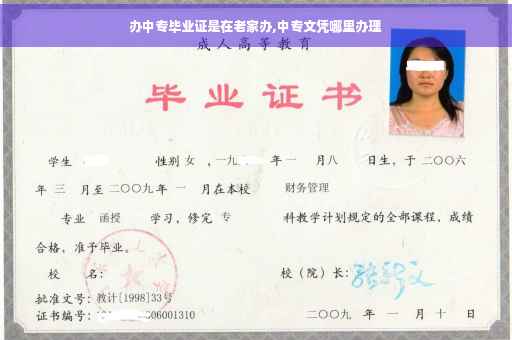 办中专毕业证是在老家办,中专文凭哪里办理
成人高等教育
毕业证书
学生 性别 女 ,一九 年 一 月八 日生，于 二〇〇六
年 三 月至 二〇〇九 年 一 月在本校 财务管理
专业 函授 学习，修完 专 科教学计划规定的全部课程，成绩
合格，准予毕业。
校 名： 校（院）长：
批准文号：教计[1998]33号
证书编号： 06001310 二〇〇九 年 一 月 十 日